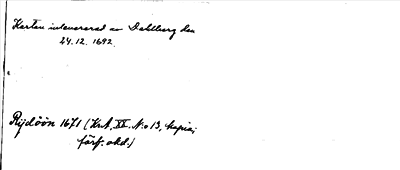 Kartan intecnerad av Dahlberg den
24.12.1692.
Rydöön 1671 (KrA, XI. N:o 13, kopia;
förf. okd.)